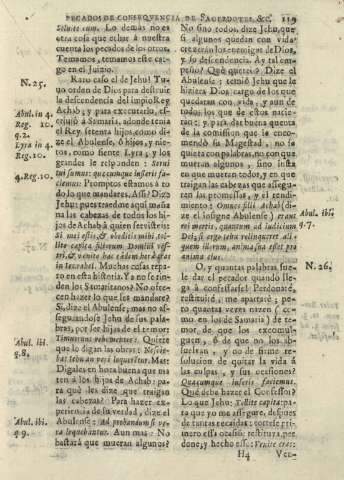 PECADOS DE CONSEQUENCIA DE SACERDOTES, &c. 119
Soluite eum. Lo demàs no es
otra cosa que echar à nuestra
cuenta los pecados de los otros.
Temamos, temamos este car-
go en el Juizio.
N. 25.
Raro caso el de Jehu! Tu-
vo orden de Dios para destruir
la descendencia del impio Rey
Achab; y para executarlo, es-
Abul. in 4.
Reg. 10.
q. 2.
Lyra in 4.
Reg. 10.
criuiò à Samaria, adonde tenia
el Rey setenta hijos, como dize
el Abulense, ò hijos, y nie-
tos, como siente Lyra; y los
grandes le responden: Serui
4. Reg. 10.
tui sumus: quæcumque iusseris fa-
ciemus: Promptos estamos à to-
do lo que mandares. Assi? Dize
Jehu: pues traedme aqui maña-
na las cabezas de todos los hi-
jos de Achab à quien servisteis:
Si mei estis, & obeditis mihi, tol-
lite capita filiorum Domini ves-
tri, & venite hac eadem hora cras
in Iezrahel. Muchas cosas repa-
ro en esta historia. Y a no se rin-
den los Samaritanos? No ofre-
cen hazer lo que les mandare?
Si, dize el Abulense; mas no as-
segurandose Jehu de sus pala-
bras, por ser hijas de el temor:
Abul. ibi.
q. 8.
Timuerunt vehementer: Quiere
que lo digan las obras: Nescie-
bat tamen an veri loquerentur. Mas:
Digales en hora buena que ma-
ten à los hijos de Achab: pa-
ra què les dize que traigan
las cabezas? Para hazer ex-
periencia de su verdad, dize el
Abul. ibi.
q. 9.
Abulense: ad probandum si ve-
ra loquebantur. Aun mas: No
bastarà que mueran algunos?
No sino todos, dize Jehu, que
si algunos quedan con vida
creceràn los enemigos de Dios,
y su descendencia. Ay tal em-
peño! Què quereis? Dize el
Abulense: temiò Jehu que le
hiziera Dios cargo de los que
quedaran con vida, y aun de
todos los que de estos nacie-
ran; y para dàr buena quenta
de la comission que le enco-
mendò su Magestad, no se
quieta con palabras, no con que
mueran algunos, sino insta
en que mueran todos, y en que
traigan las cabezas que assegu-
ran las promessas, y el rendi-
miento: Omnes filij Achab (dize
Abul. ibi,
q. 7.
el insigne Abulense) erant
rei mortis, quantum ad iudicium
Dei; si ergo Iehu relinqueret ali-
quem illorum, anima sua esset pro
anima eius.
N. 26.
O, y quantas palabras sue-
le dàr el pecador quando lle-
ga à confessarse! Perdonarè,
restituirè, me apartarè; pe-
ro quantas vezes nazen (co-
mo en los de Samaria) de te-
mor de que los excomul-
guen, ò de que no los ab-
suelvan, y no de firme re-
solucion de quitar la vida à
las culpas, y sus ocasiones!
Quæcumque iusseris faciemus.
Què debe hazer el Confessor?
Lo que Jehu: Tollite capita: pa-
ra que yo me assegure, despues
de tantas recaìdas: corte se pri-
mero essa ocasion: restituya, per-
done; y hecho esso: Venite cras:
H4 Ven-